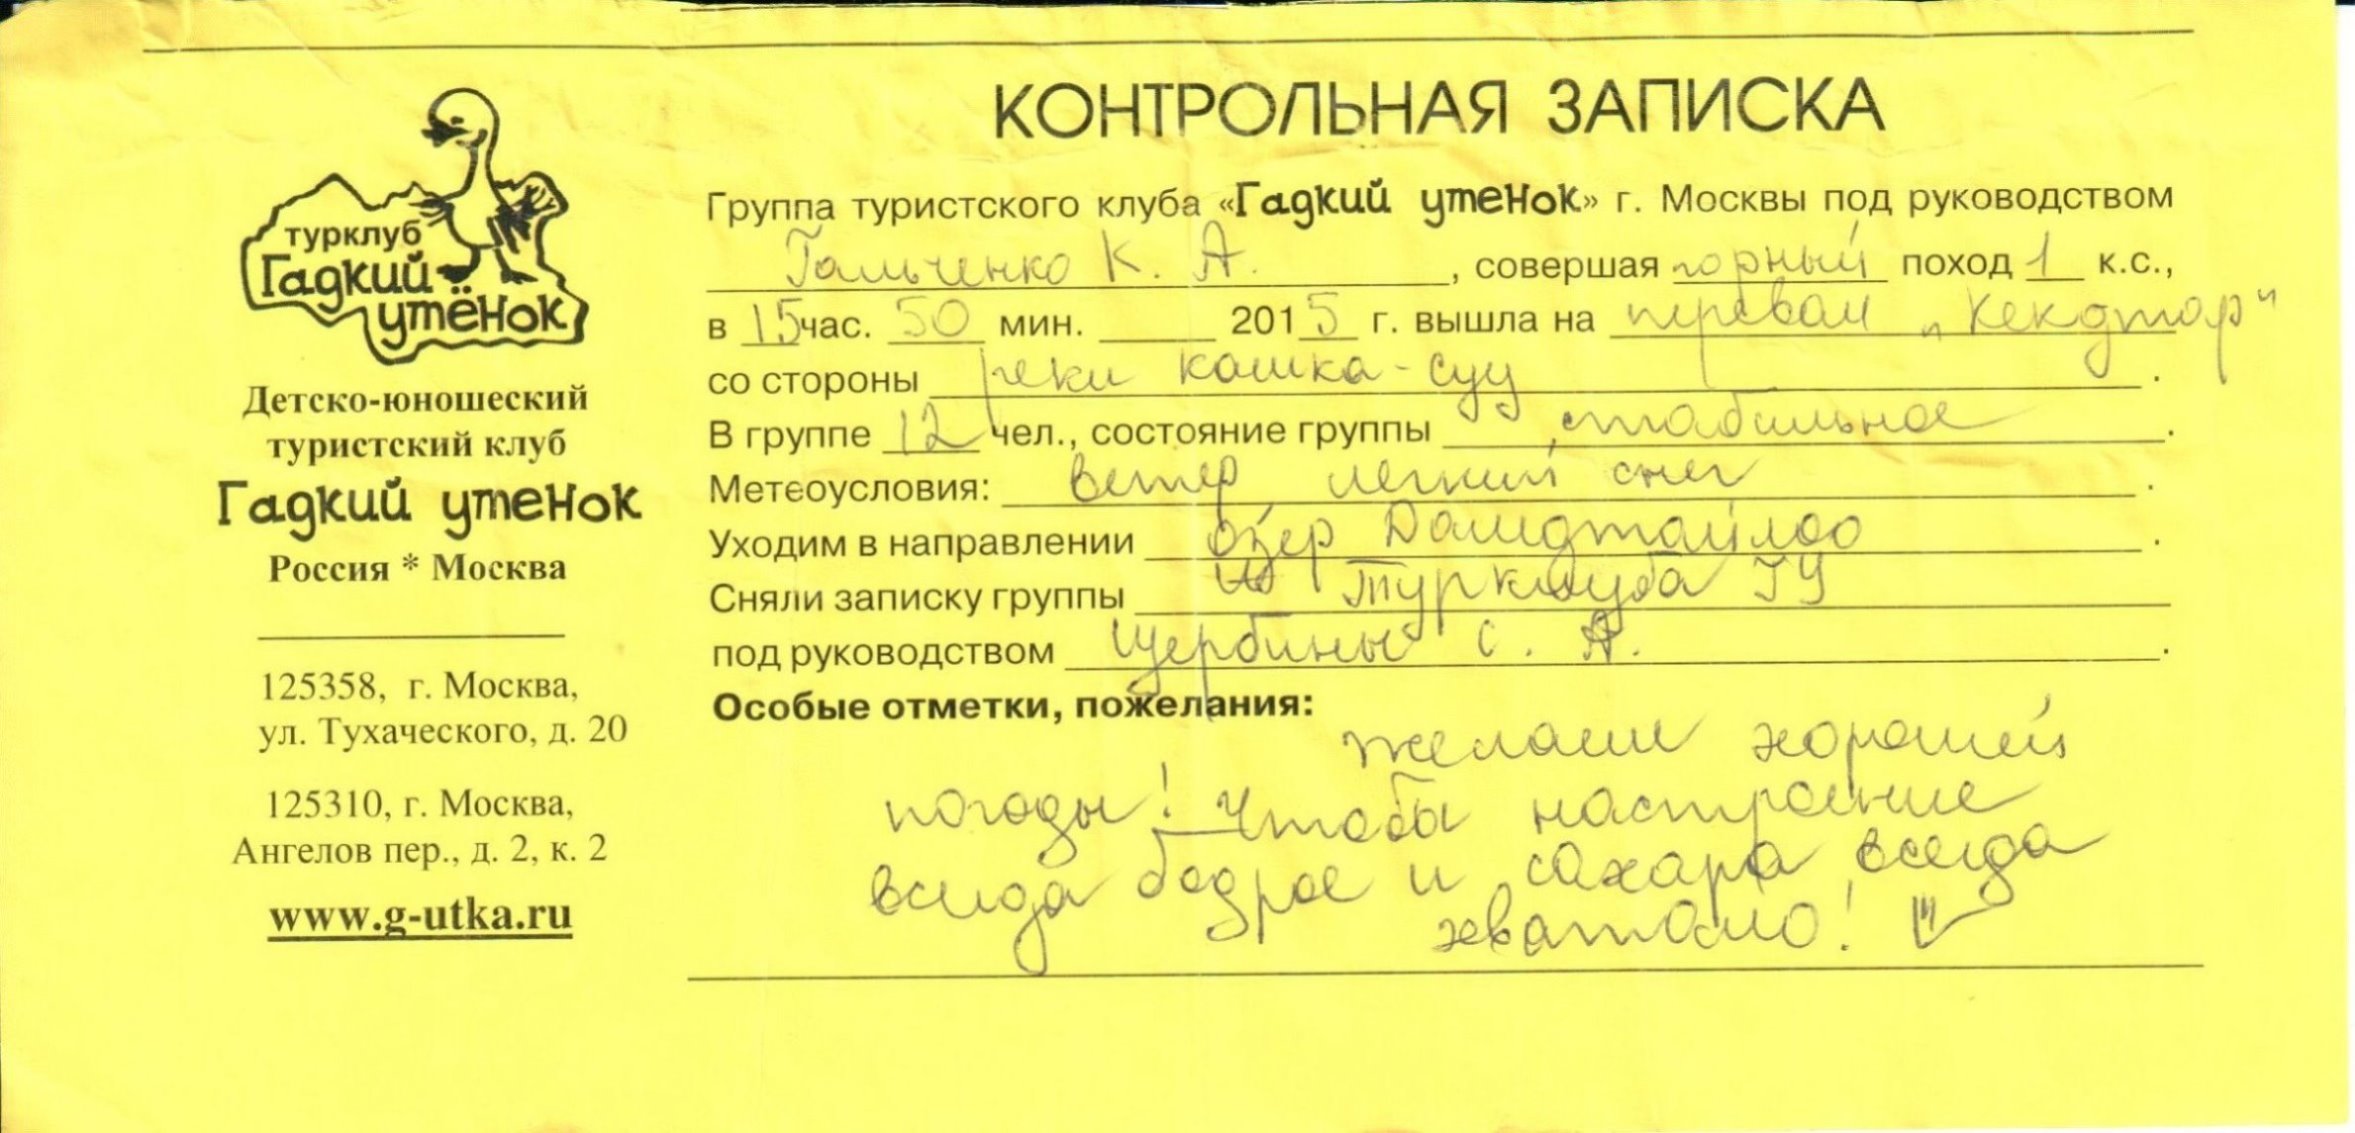 турклуб
Гадкий
утёнок
Детско-юношеский
туристский клуб
Гадкий утенок
Россия * Москва
125358, г. Москва,
ул. Тухаческого, д. 20
125310, г. Москва,
Ангелов пер., д. 2, к. 2
www.g-utka.ru
КОНТРОЛЬНАЯ ЗАПИСКА
Группа туристского клуба «Гадкий утенок» г. Москвы под руководством
Гальченко К. А. , совершая горный поход 1 к.с.,
в 15 час. 50 мин. 2015 г. вышла на перевал "Кекджар"
со стороны реки кашка-суу .
В группе 12 чел., состояние группы стабильное .
Метеоусловия: ветер, легкий снег .
Уходим в направлении озер .
Сняли записку группы из Турклуба ГУ
под руководством Щербины С. А. .
Особые отметки, пожелания:
желаем хорошей
погоды! Чтобы настроение
всегда бодрое и сахара всегда
хватало!